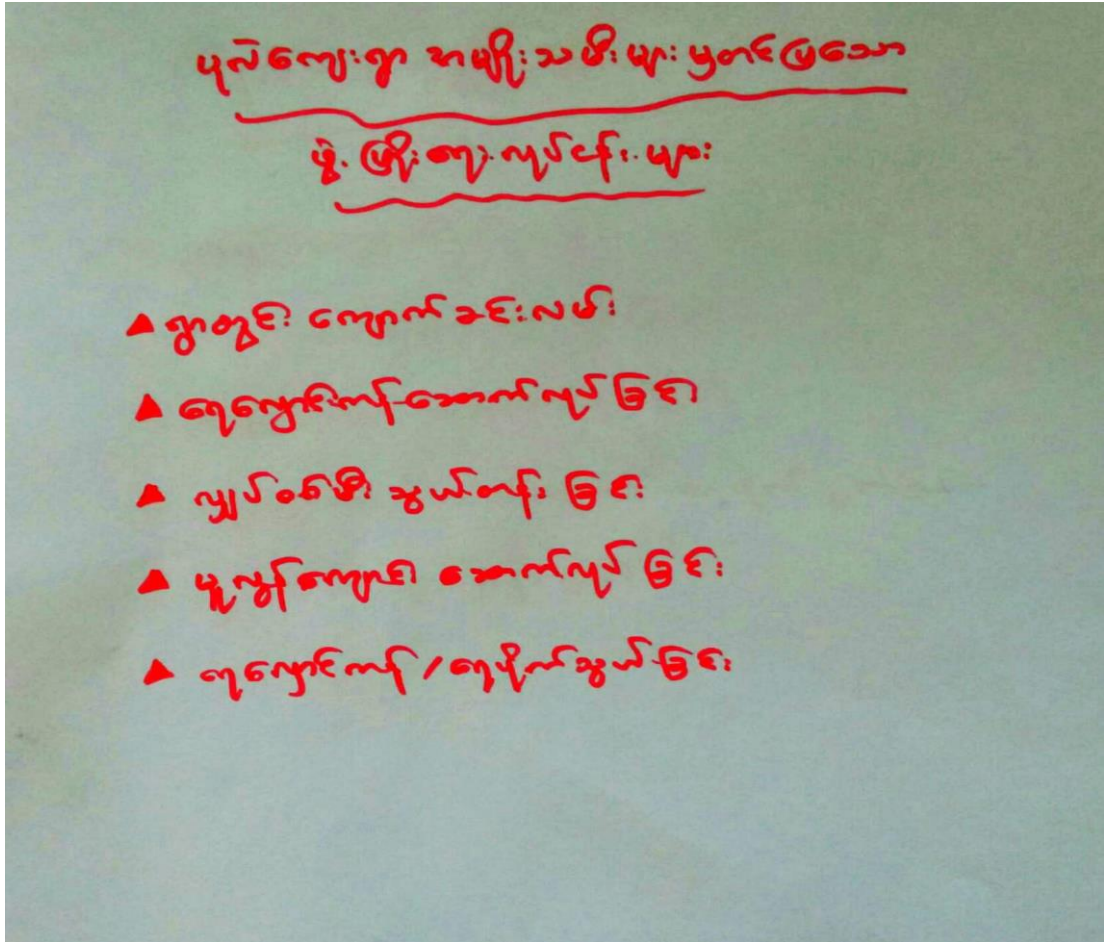 ပုလဲကျေးရွာ အမျိုးသမီးများ မှတင်ပြသော
ဖွံ့ဖြိုးရေးလုပ်ငန်းများ
▲ ရွာတွင်း ကျောက်ခင်းလမ်း
▲ ရေလှောင်ကန်ဆောက်လုပ်ခြင်း
▲ လျှပ်စစ်မီး သွယ်တန်းခြင်း
▲ မူလွန်ကျောင်း ဆောက်လုပ်ခြင်း
▲ ရေလှောင်ကန်/ရေပိုက်သွယ်ခြင်း